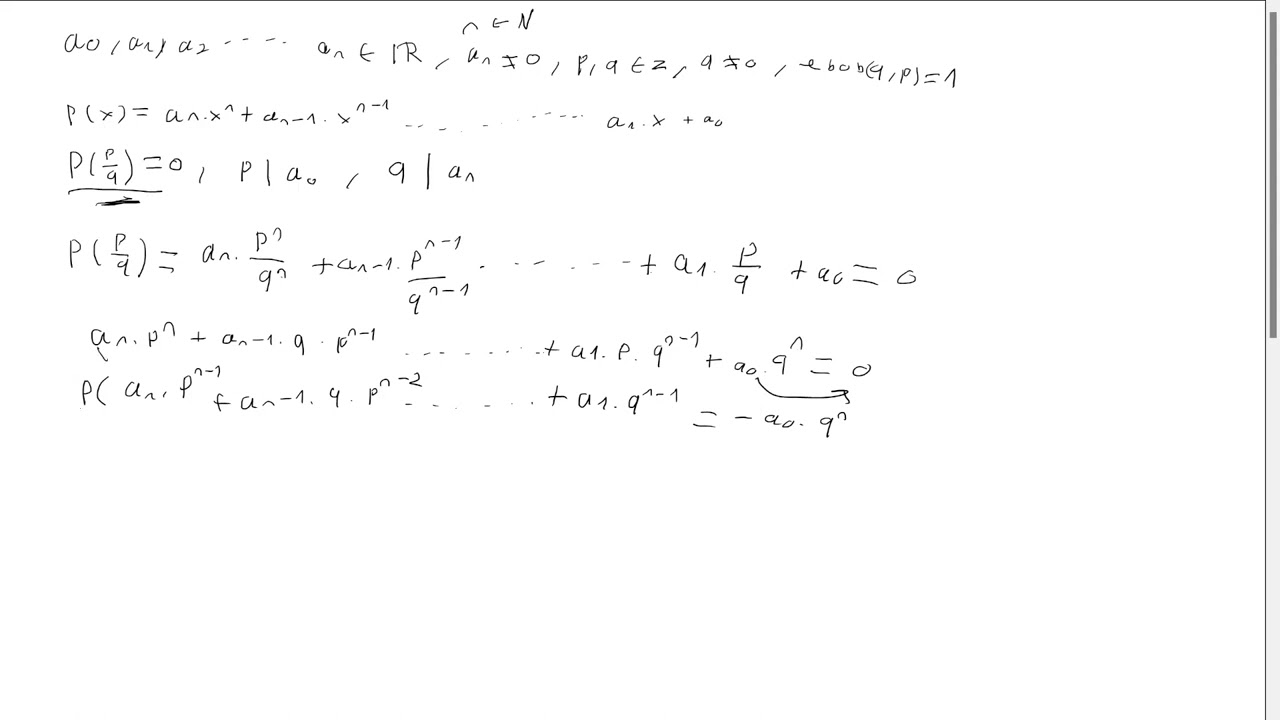 n ∈ N
a0, a1, a2 ..... an ∈ IR, an ≠ 0, p, q ∈ z, q ≠ 0, ebob(q, p) = 1
P(x) = an.x^n + an-1.x^n-1 ........... a1.x + a0
P(p/q) = 0, p | a0, q | an
P(p/q) = an.p^n/q^n + an-1.p^n-1/q^n-1 ........ + a1.p/q + a0 = 0
an.p^n + an-1.q.p^n-1 ........ + a1.p.q^n-1 + a0.q^n = 0
P(an.p^n-1 + an-1.q.p^n-2 ........ + a1.q^n-1 = -a0.q^n